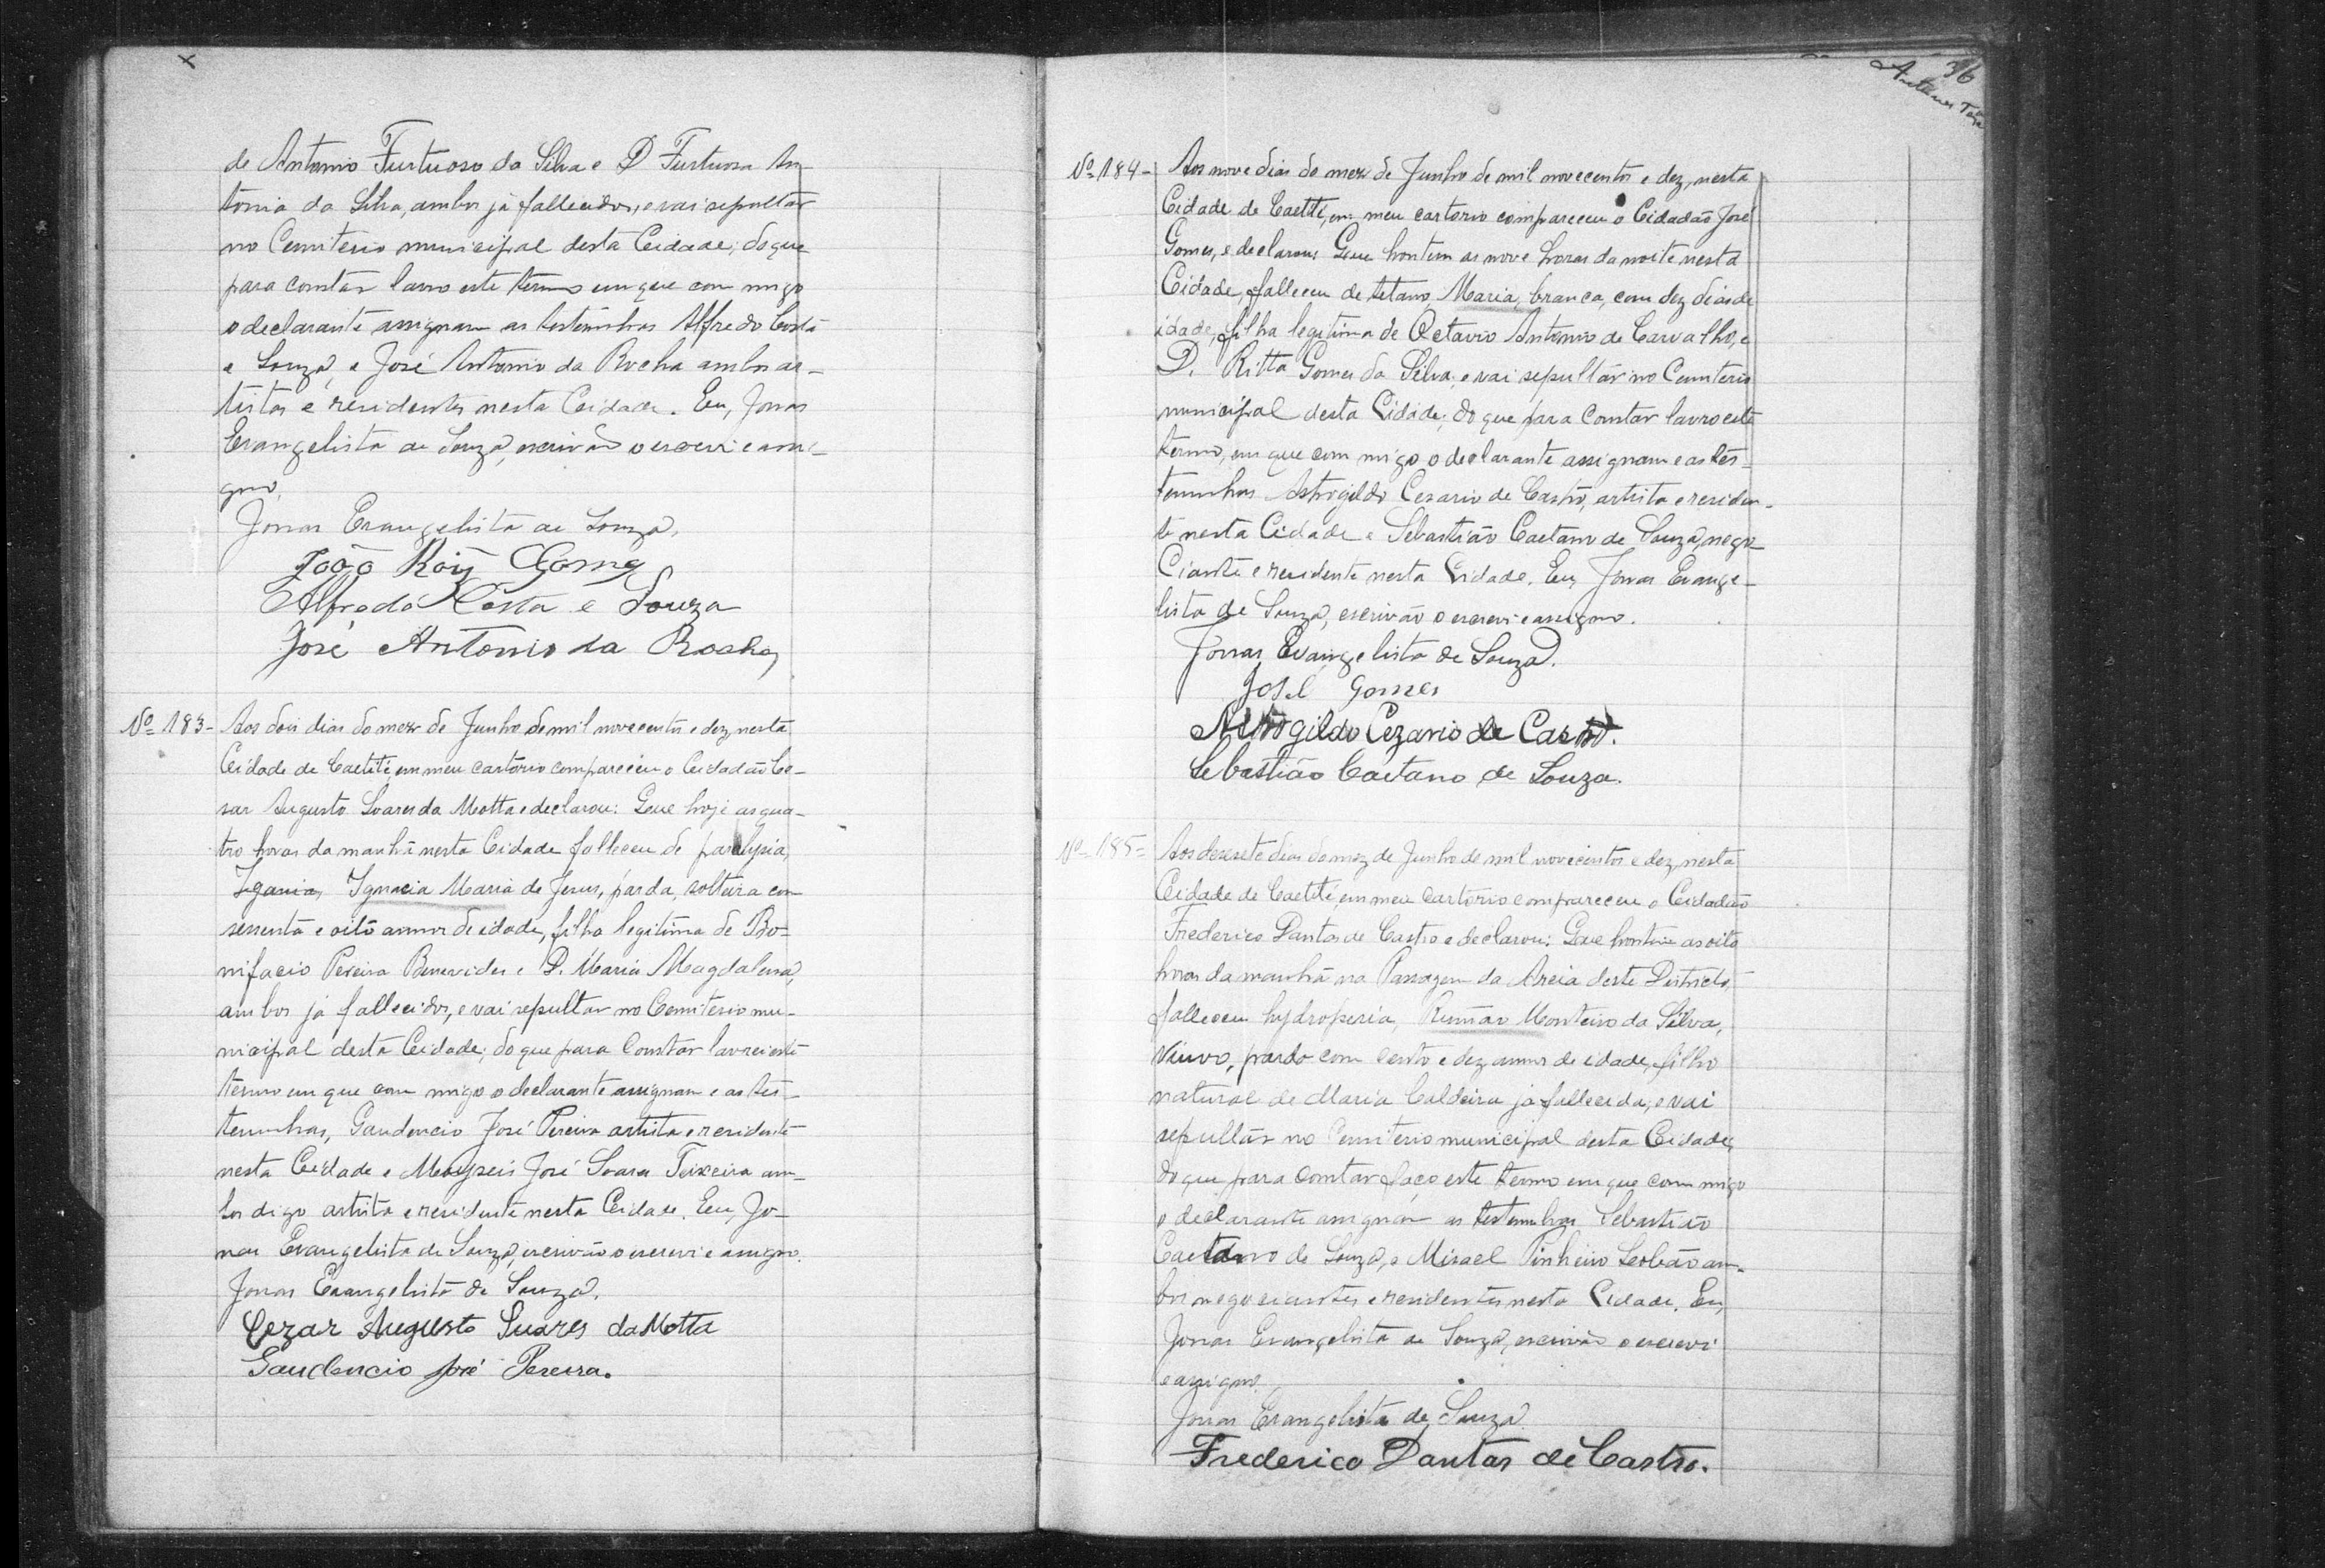 de Antonio Furtuoso da Silva e D Furtuosa An-
tonia da Silva, ambos já fallecidos, e vai sepultar
no Cemiterio municipal desta Cidade; do que
para constar lavro este termo em que com migo
o declarante assignam as testeinhas Alfredo Costa
e Souza, e José Antonio da Rocha ambos ar-
tistas e residentes nesta Cidade. Eu, Jonas
Evangelista de Souza, escrivão o escrevi e assi-
gno.
Jonas Evangelista de Souza.
João Roiz Gomes
Alfredo Costa e Souza
José Antonio da Rocha
Nº 183- Aos dois dias do mez de Junho de mil novecentos e dez, nesta
Cidade de Caetité, em meu cartorio compareceu o Cidadão Ce-
sar Augusto Soares da Motta e declarou: Que hoje as qua-
tro horas da manhã nesta Cidade falleceu de paralysia,
Igania, Ignacia Maria de Jesus, parda, solteira com
sessenta e oito annos de idade, filha legitima de Bo-
nifacio Pereira Benevides e D. Maria Magdalena,
ambos já fallecidos, e vai sepultar no Cemiterio mu-
nicipal desta Cidade; do que para constar lavrei este
termo em que com migo o declarante assignam e as tes-
temunhas, Gaudencio José Pereira artista e residente
nesta Cidade e Moyseis José Soares Teixeira am-
bos digo artista e residente nesta Cidade. Eu, Jo-
nas Evangelista de Souza, escrivão o escrevi e assigno.
Jonas Evangelista de Souza.
Cezar Augusto Suares da Motta
Gaudencio José Pereira.
36
Nº 184- Aos nove dias do mez de Junho de mil novecentos e dez, nesta
Cidade de Caetité, em meu cartorio compareceu o Cidadão José
Gomes, e declarou: Que hontem as nove horas da noite nesta
Cidade, falleceu de tetano, Maria, branca, com dez dias de
idade, filha legitima de Octavio Antonio de Carvalho, e
D. Ritta Gomes da Silva, e vai sepultar no Cemiterio
municipal desta Cidade; do que para constar lavro este
termo, em que com migo o declarante assignam e as tes-
temunhas Astrogildo Cezario de Castro, artista e residen-
te nesta Cidade e Sebastião Caetano de Souza, nego-
ciante e residente nesta Cidade. Eu, Jonas Evange-
lista de Souza, escrivão o escrevi e assigno.
Jonas Evangelista de Souza.
José Gomes
Astrogildo Cezario de Castro.
Sebastião Caetano de Souza.
Nº 185- Aos desesete dias do mez de Junho de mil novecentos e dez, nesta
Cidade de Caetité, em meu cartorio compareceu o Cidadão
Frederico Dantas de Castro e declarou: Que hontem as oito
horas da manhã na Passagem da Areia deste Districto,
falleceu hydropesia, Rumão Monteiro da Silva,
viuvo, pardo com cento e dez annos de idade, filho
natural de Maria Caldeira já fallecida; e vai
sepultar no Cemiterio municipal desta Cidade,
do que para constar faço este termo em que com migo
o declarante assignam as testemunhas Sebastião
Caetano de Souza, e Misael Pinheiro Ledoão am-
bos negociantes e residentes nesta Cidade. Eu,
Jonas Evangelista de Souza, escrivão o escrevi
e assigno.
Jonas Evangelista de Souza
Frederico Dantas de Castro.